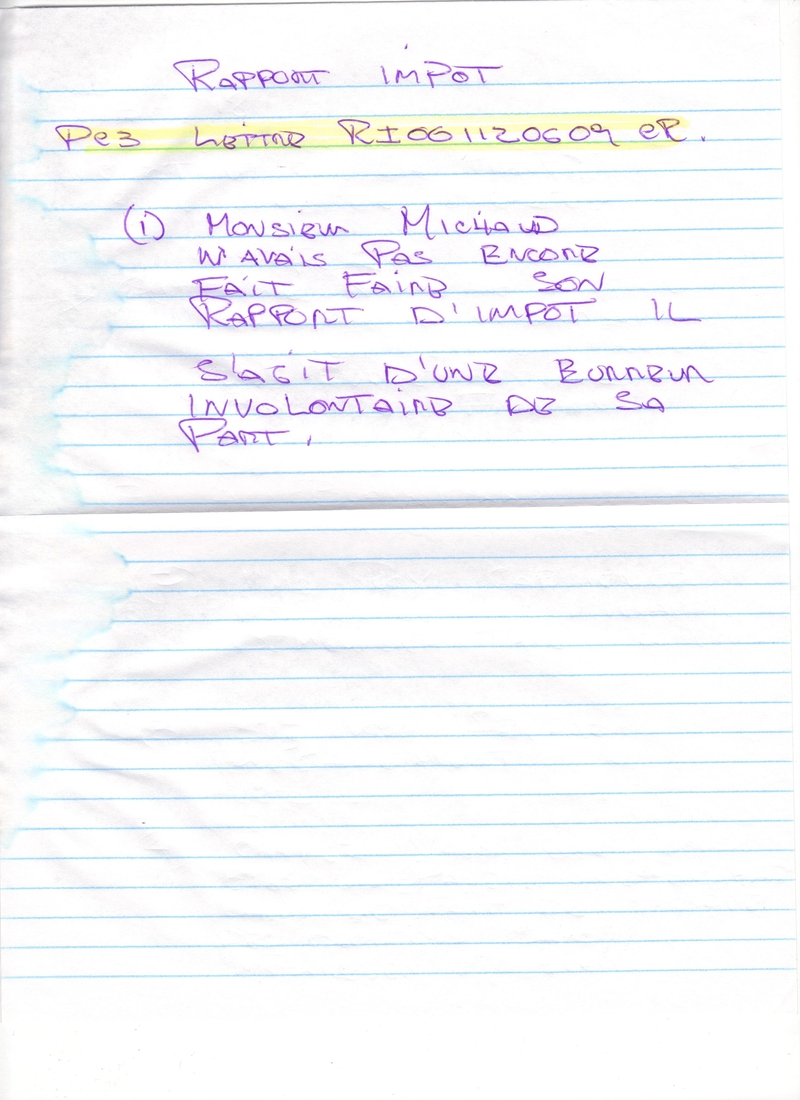 RAPPORT IMPOT
Pe3 LETTRE RI061120609 eR.
(1) MONSIEUR MICHAUD
N'AVAIS PAS ENCORE
FAIT FAIRE SON
RAPPORT D'IMPOT IL
S'AGIT D'UNE EURREUR
INVOLONTAIRE DE SA
PART.